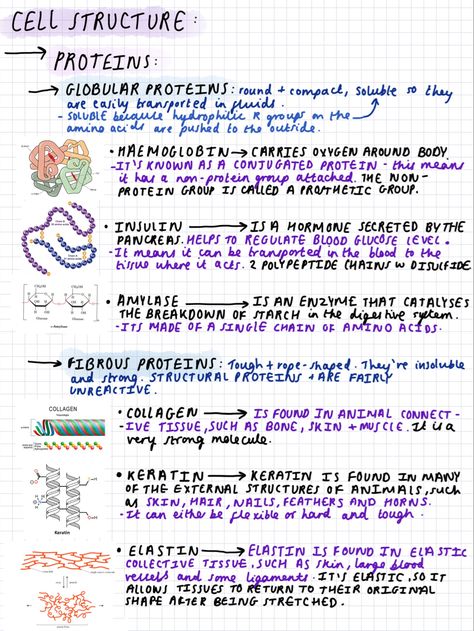 CELL STRUCTURE:
→ PROTEINS:
→ GLOBULAR PROTEINS: round + compact, soluble so they
are easily transported in fluids.
- SOLUBLE because hydrophilic R groups on the
amino acids are pushed to the outside.
• HAEMOGLOBIN → CARRIES OXYGEN AROUND BODY.
- IT'S KNOWN AS A CONJUGATED PROTEIN - this means
it has a non-protein group attached. THE NON-
PROTEIN GROUP IS CALLED A PROSTHETIC GROUP.
• INSULIN → IS A HORMONE SECRETED BY THE
PANCREAS. HELPS TO REGULATE BLOOD GLUCOSE LEVEL.
- It means it can be transported in the blood to the
tissue where it acts. 2 POLYPEPTIDE CHAINS W DISULFIDE.
• AMYLASE → IS AN ENZYME THAT CATALYSES
THE BREAKDOWN OF STARCH in the digestive system.
- ITS MADE OF A SINGLE CHAIN OF AMINO ACIDS.
Glucose
Glucose
α-Amylase
→ FIBROUS PROTEINS: Tough + rope-shaped. They're insoluble
and strong. STRUCTURAL PROTEINS + ARE FAIRLY
UNREACTIVE.
COLLAGEN
• COLLAGEN → IS FOUND IN ANIMAL CONNECT-
- IVE TISSUE, SUCH AS BONE, SKIN + MUSCLE. It is a
very strong molecule.
• KERATIN → KERATIN IS FOUND IN MANY
OF THE EXTERNAL STRUCTURES OF ANIMALS, such
as SKIN, HAIR, NAILS, FEATHERS AND HORNS.
- It can either be flexible or hard and tough.
Keratin
• ELASTIN → ELASTIN IS FOUND IN ELASTIC
COLLECTIVE TISSUE, SUCH AS skin, large blood
vessels and some ligaments. IT'S ELASTIC, SO IT
ALLOWS TISSUES TO RETURN TO THEIR ORIGINAL
SHAPE AFTER BEING STRETCHED.